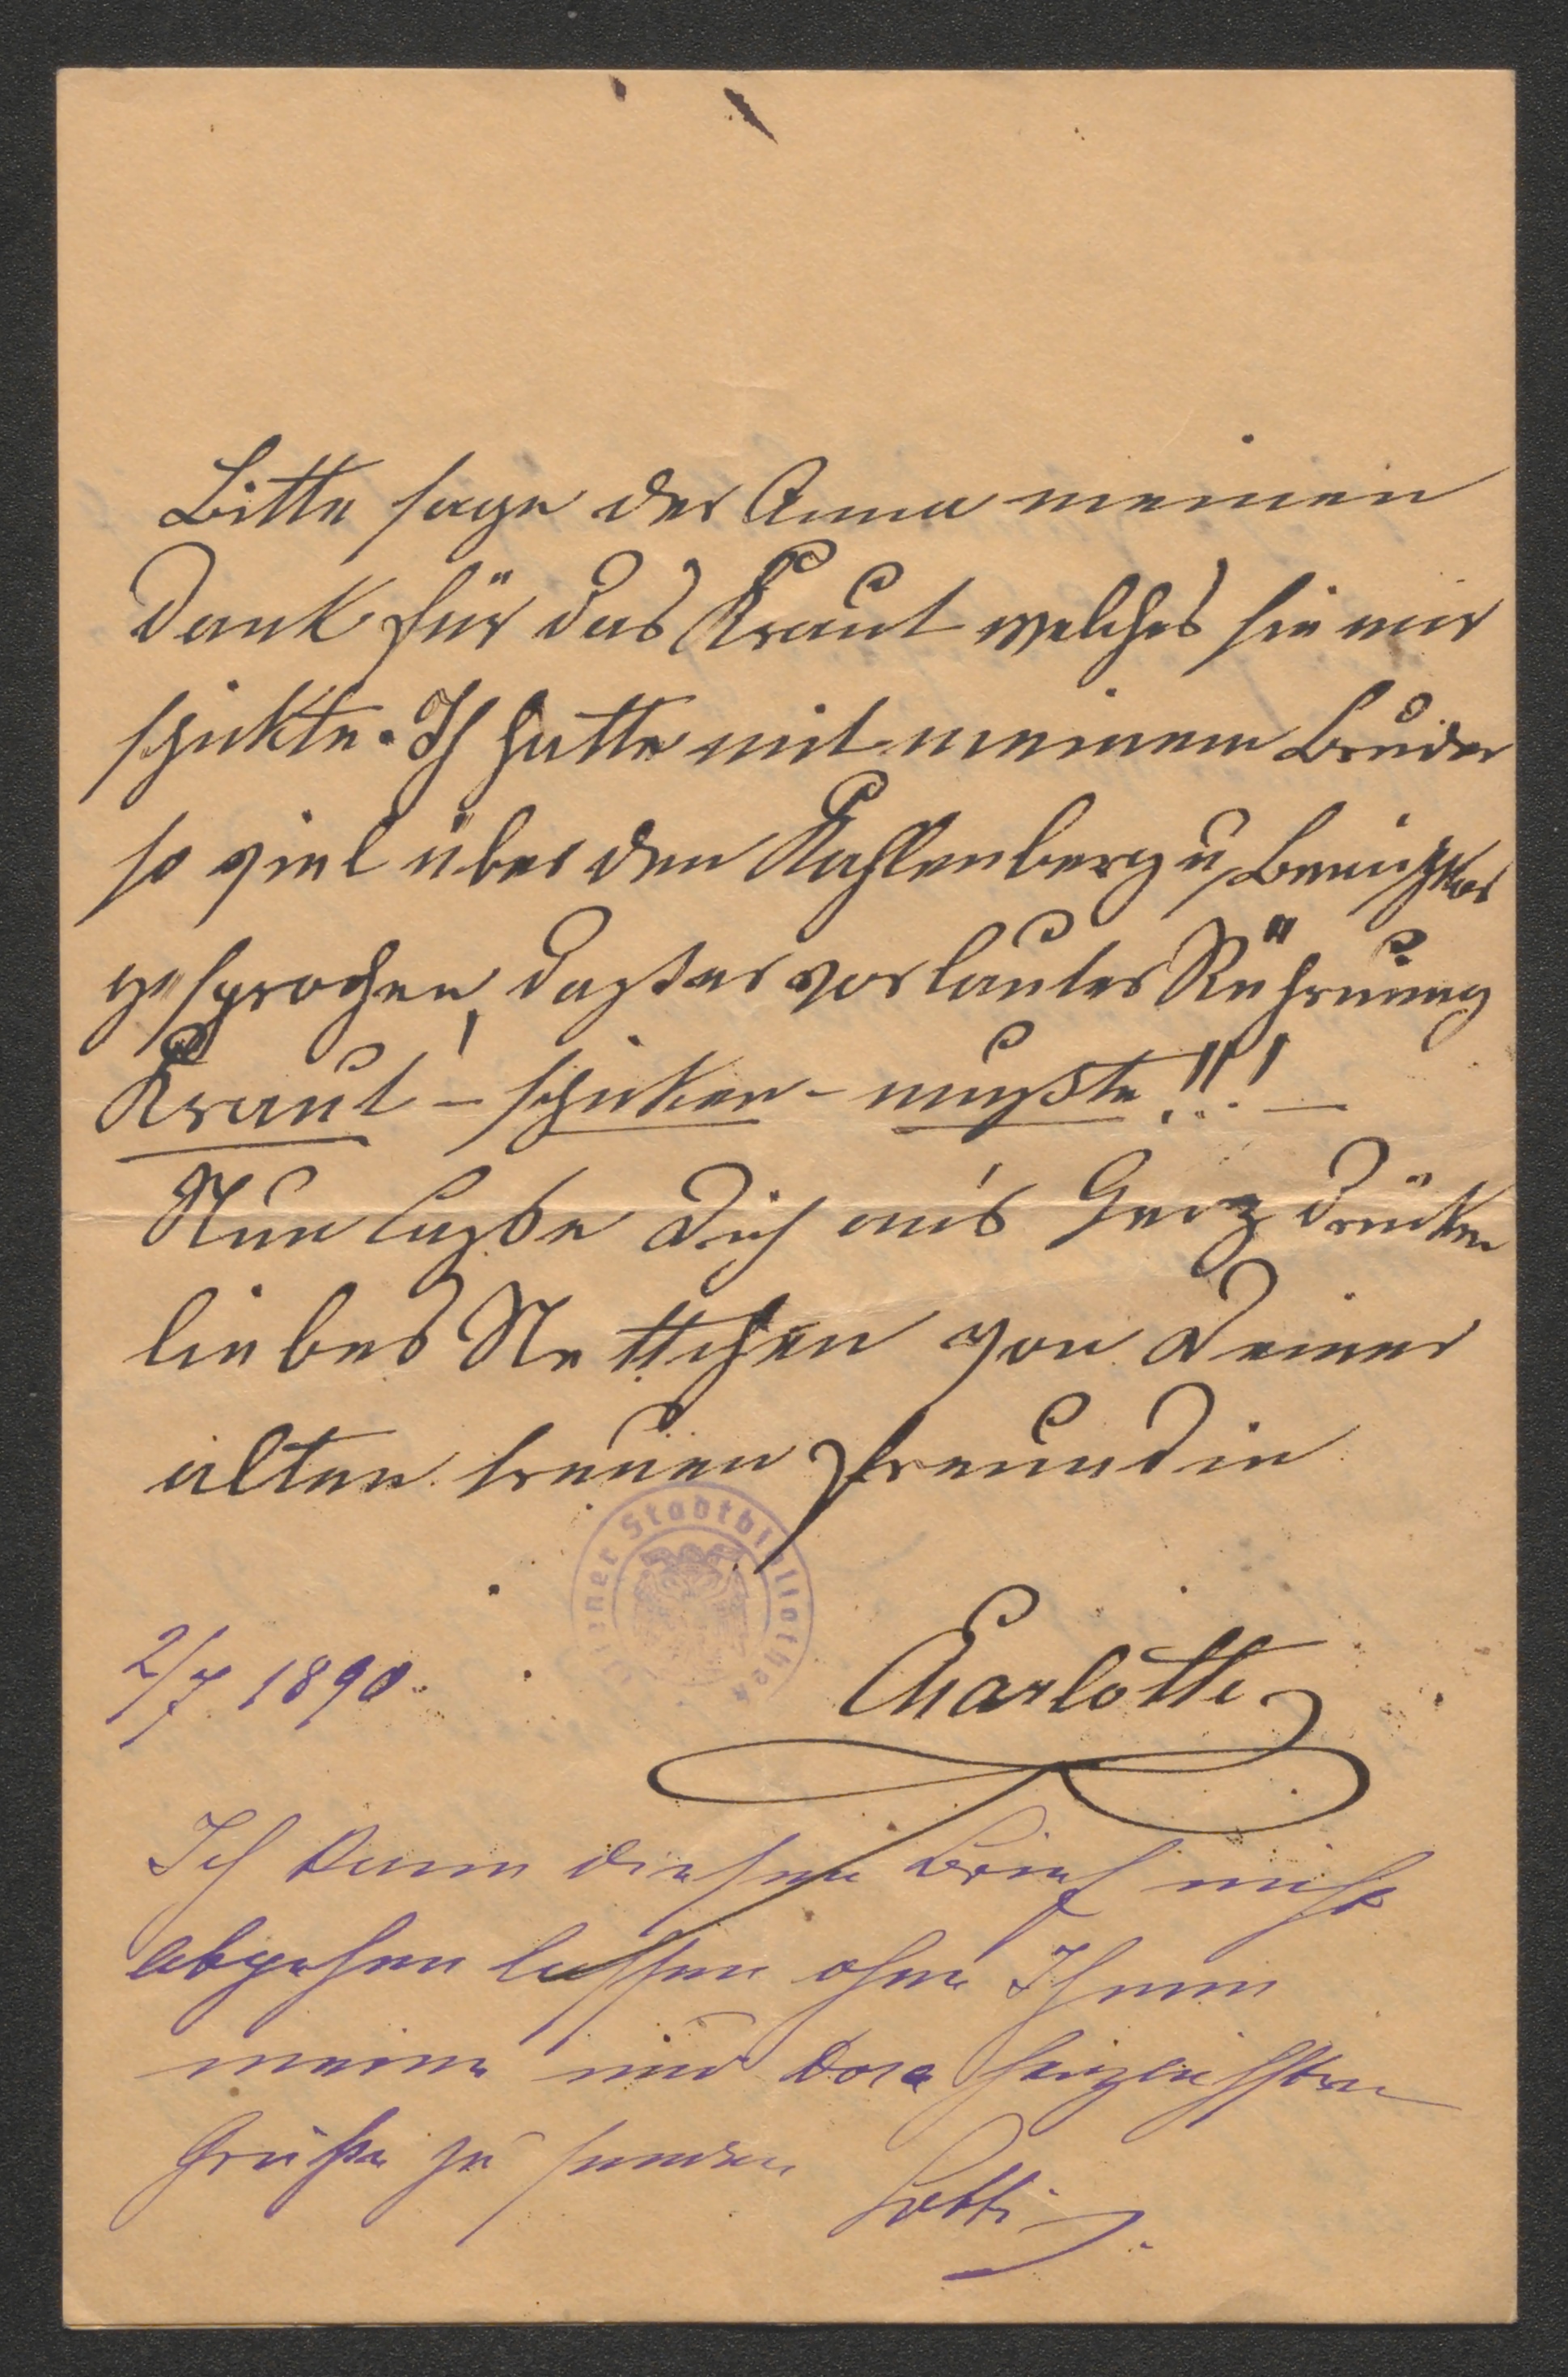 Bitte sage der Anna meinen
Dank für das Kraut welches sie mir
schikte. Ich hatte mit meinem Bruder
so viel über den Kahlenberg u,
gesprochen, daß er vor lauter Rührung
Kraut – schiken – mußte!!! –
Nun laße Dich an's Herz drüken
liebes Nettchen von Deiner
alten treuen Freundin
Wiener Stadtbibliothek
2/7 1890.
Charlotte
Ich kann diesen Brief nicht
abgehen lassen ohne Ihnen
meine und Dora herzlichsten
Grüße zu senden
Lotti